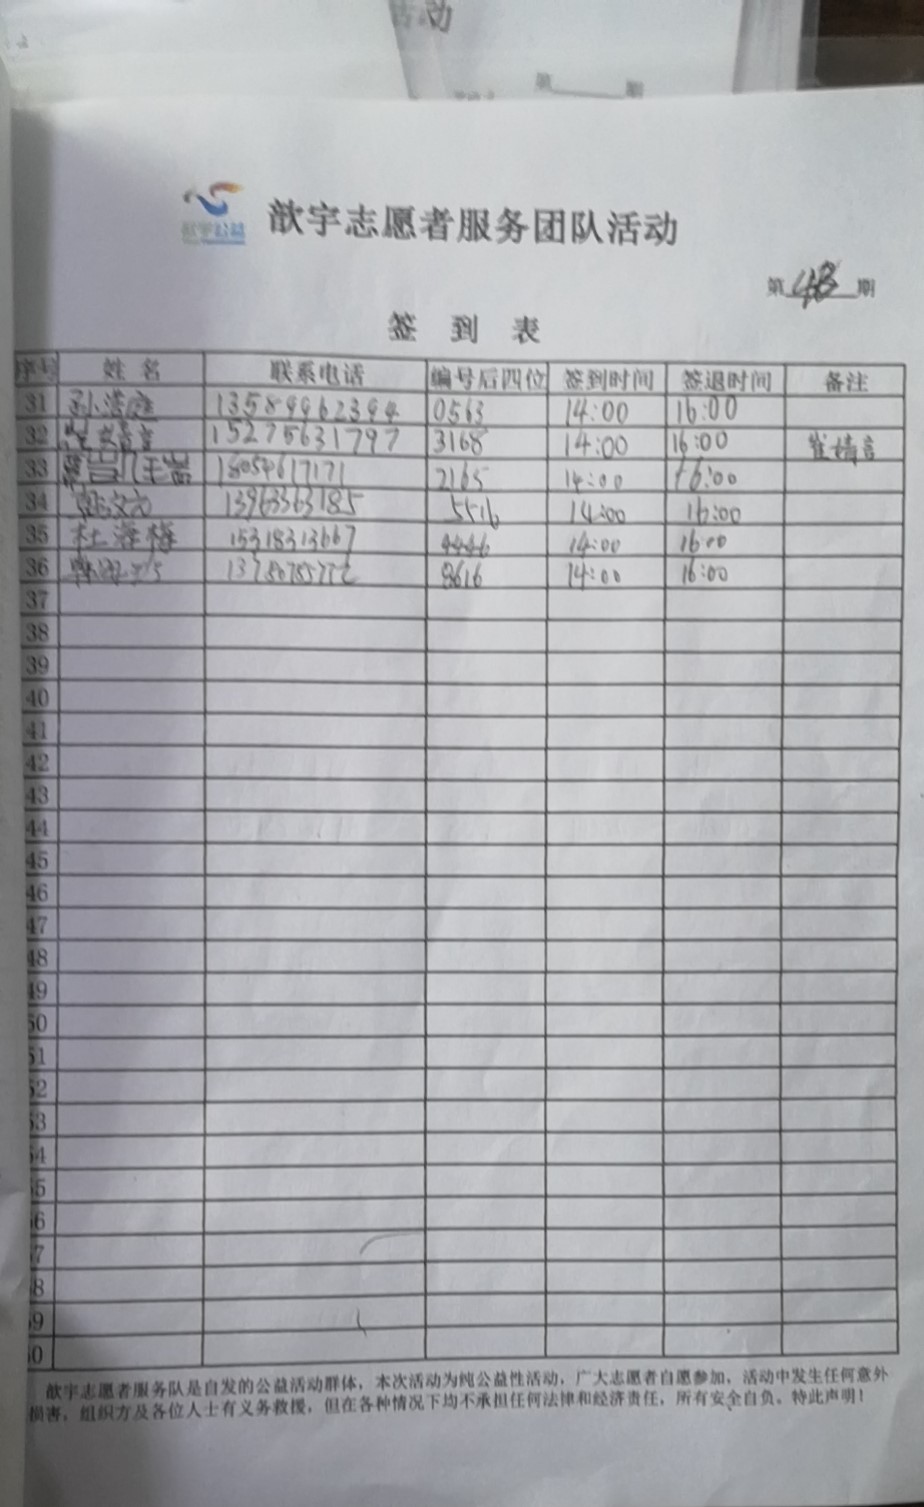 活动
第 期
歆宇公益
歆宇志愿者服务团队活动
第 48 期
签 到 表
序号 姓 名 联系电话 编号后四位 签到时间 签退时间 备注
31 13589962394 0563 14:00 16:00
32 崔婧言 15275631797 3168 14:00 16:00 崔婧言
33 18054617171 2165 14:00 16:00
34 13963363185 5516 14:00 16:00
35 杜海梅 15318313667 4446 14:00 16:00
36 8616 14:00 16:00
37
38
39
40
41
42
43
44
45
46
47
48
49
50
51
52
53
54
55
56
57
58
59
60
歆宇志愿者服务队是自发的公益活动群体，本次活动为纯公益性活动，广大志愿者自愿参加，活动中发生任何意外
损害，组织方及各位人士有义务救援，但在各种情况下均不承担任何法律和经济责任，所有安全自负。特此声明！